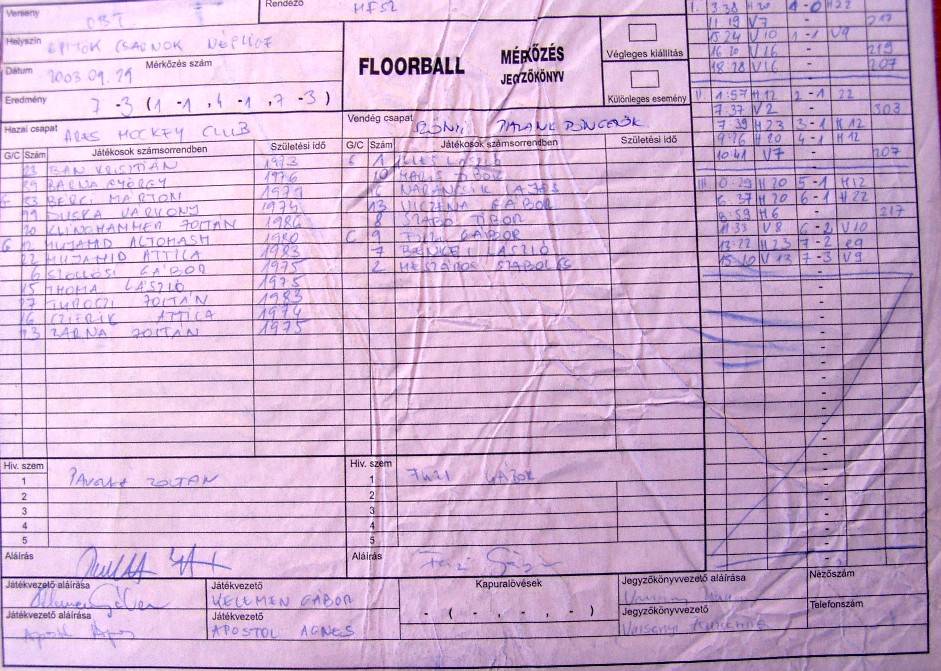 Verseny OBT
Rendező MFSZ
Helyszín ÉPITŐK CSARNOK NÉPLIGET
Dátum 2003.09.29
Mérkőzés szám
Eredmény 7-3 (1-1, 4-1, 7-3)
FLOORBALL
MÉRKŐZÉS
JEGYZŐKÖNYV
Végleges kiállítás
Különleges esemény
Hazai csapat ARES HOCKEY CLUB
Vendég csapat SZŐNYI
G/C Szám Játékosok számsorrendben Születési idő
23 BAN KRISZTIÁN 1973
89 BARNA GYÖRGY 1976
83 BERCI MARTON
99 DUSKA VARKONY 1974
20 KLINGHAMMER ZOLTAN 1986
G 12 MUJAMID ALTOMASH 1980
22 MUJAMID ATTILA 1983
6 SZOLLŐSI GÁBOR 1975
15 THOMA LÁSZLÓ 1975
27 TUROCZI ZOLTÁN 1983
16 CZIFRIK ATTILA 1974
13 ZARNA ZOLTÁN 1975
G/C Szám Játékosok számsorrendben Születési idő
G 1 LÁSZLÓ
10 MARIS TIBOR
16 NARANCSIK LAJOS
13 VICZENA GABOR
8 SZABÓ TIBOR
C 9 FÜZI GÁBOR
7 BENKEI LÁSZLÓ
2 MESZÁROS SZABOLCS
I. 3.38 H20 1-0 H22
11.19 V7 - 219
15.24 V10 1-1 V9
16.20 V16 - 219
18.28 V16 - 207
II 1:57 H12 2-1 22
7.37 V2 - 303
7.39 H23 3-1 H12
9.26 H20 4-1 H12
10.41 V7 - 207
III 0.29 H20 5-1 H12
6.37 H20 6-1 H22
8.59 H6 - 217
11.33 V8 6-2 V10
13.22 H23 7-2 e9
15.10 V13 7-3 V9
Hiv. szem
1 ZOLTAN
2
3
4
5
Hiv. szem
1 FÜZI GÁBOR
2
3
4
5
Aláírás
Aláírás Füzi Gábor
Játékvezető aláírása
Játékvezető
KELEMEN GABOR
Játékvezető aláírása
Játékvezető
APOSTOL AGNES
Kapuralövések
- ( - , - , - )
Jegyzőkönyvvezető aláírása
Jegyzőkönyvvezető
Nézőszám
Telefonszám